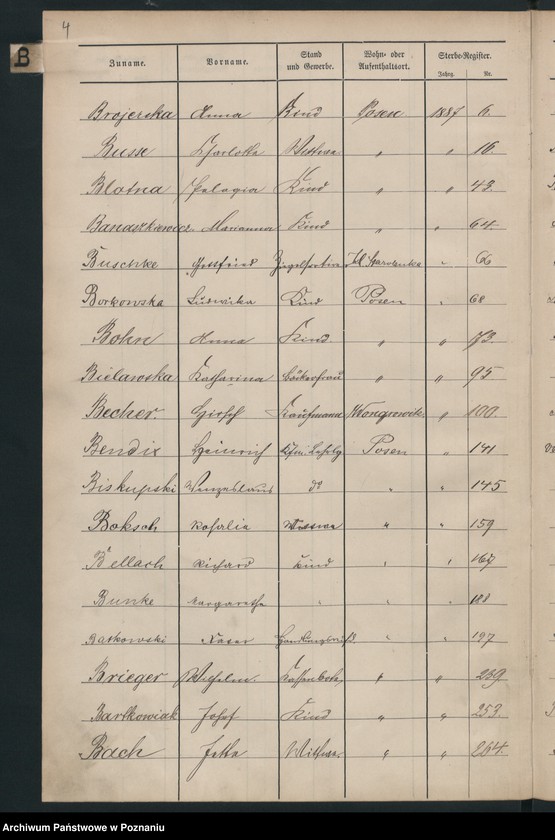 4
B
Zuname. Vorname. Stand und Gewerbe. Wohn- oder Aufenthaltsort. Sterbe-Register.
Jahrg. Nr.
Anna Kind Posen 1887 6.
Busse Charlotte Wittwe " " 16.
Blotna Pelagia Kind " " 43.
Banaszkiewicz Marianna Kind " " 64.
Buschke Gottfried "
Borkowska Ludwika Kind Posen " 68
Bohn Anna Kind " " 73.
Bielawska Katharina Bäckerfrau " " 95
Becher. Hirsch Kaufmann Wongrowitz " 100.
Bendix Heinrich Posen " 141
Biskupski Wenzeslaus do " " 145
Boksch Rosalie Wittwe " " 159
Bellach Richard Kind " " 167
Bunke Margarethe " " " 188
Batkowski " " 197
Brieger Wilhelm. Kassenbote " " 239
Bartkowiak Josef Kind " " 253.
Bach Jette Wittwe " " 264.
Archiwum Państwowe w Poznaniu